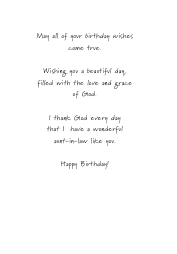 May all of your birthday wishes
come true.
Wishing you a beautiful day,
filled with the love and grace
of God.
I thank God every day
that I have a wonderful
aunt-in-law like you.
Happy Birthday!